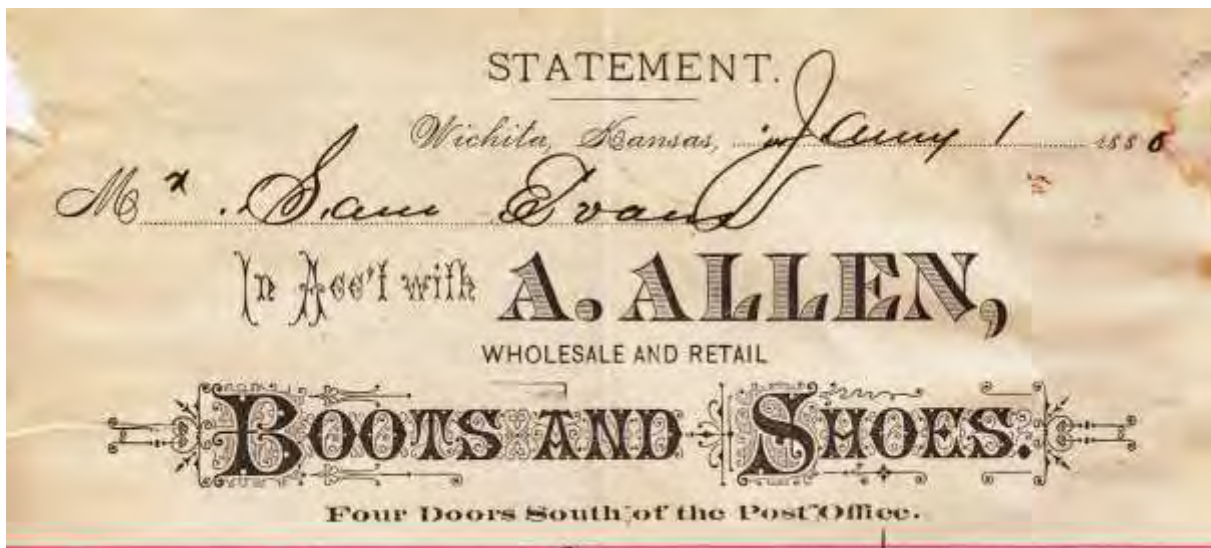 STATEMENT.
Wichita, Kansas, Jany 1 188
Mr. Sam Evans
In Acc't with A. ALLEN,
WHOLESALE AND RETAIL
BOOTS AND SHOES.
Four Doors South of the Post Office.